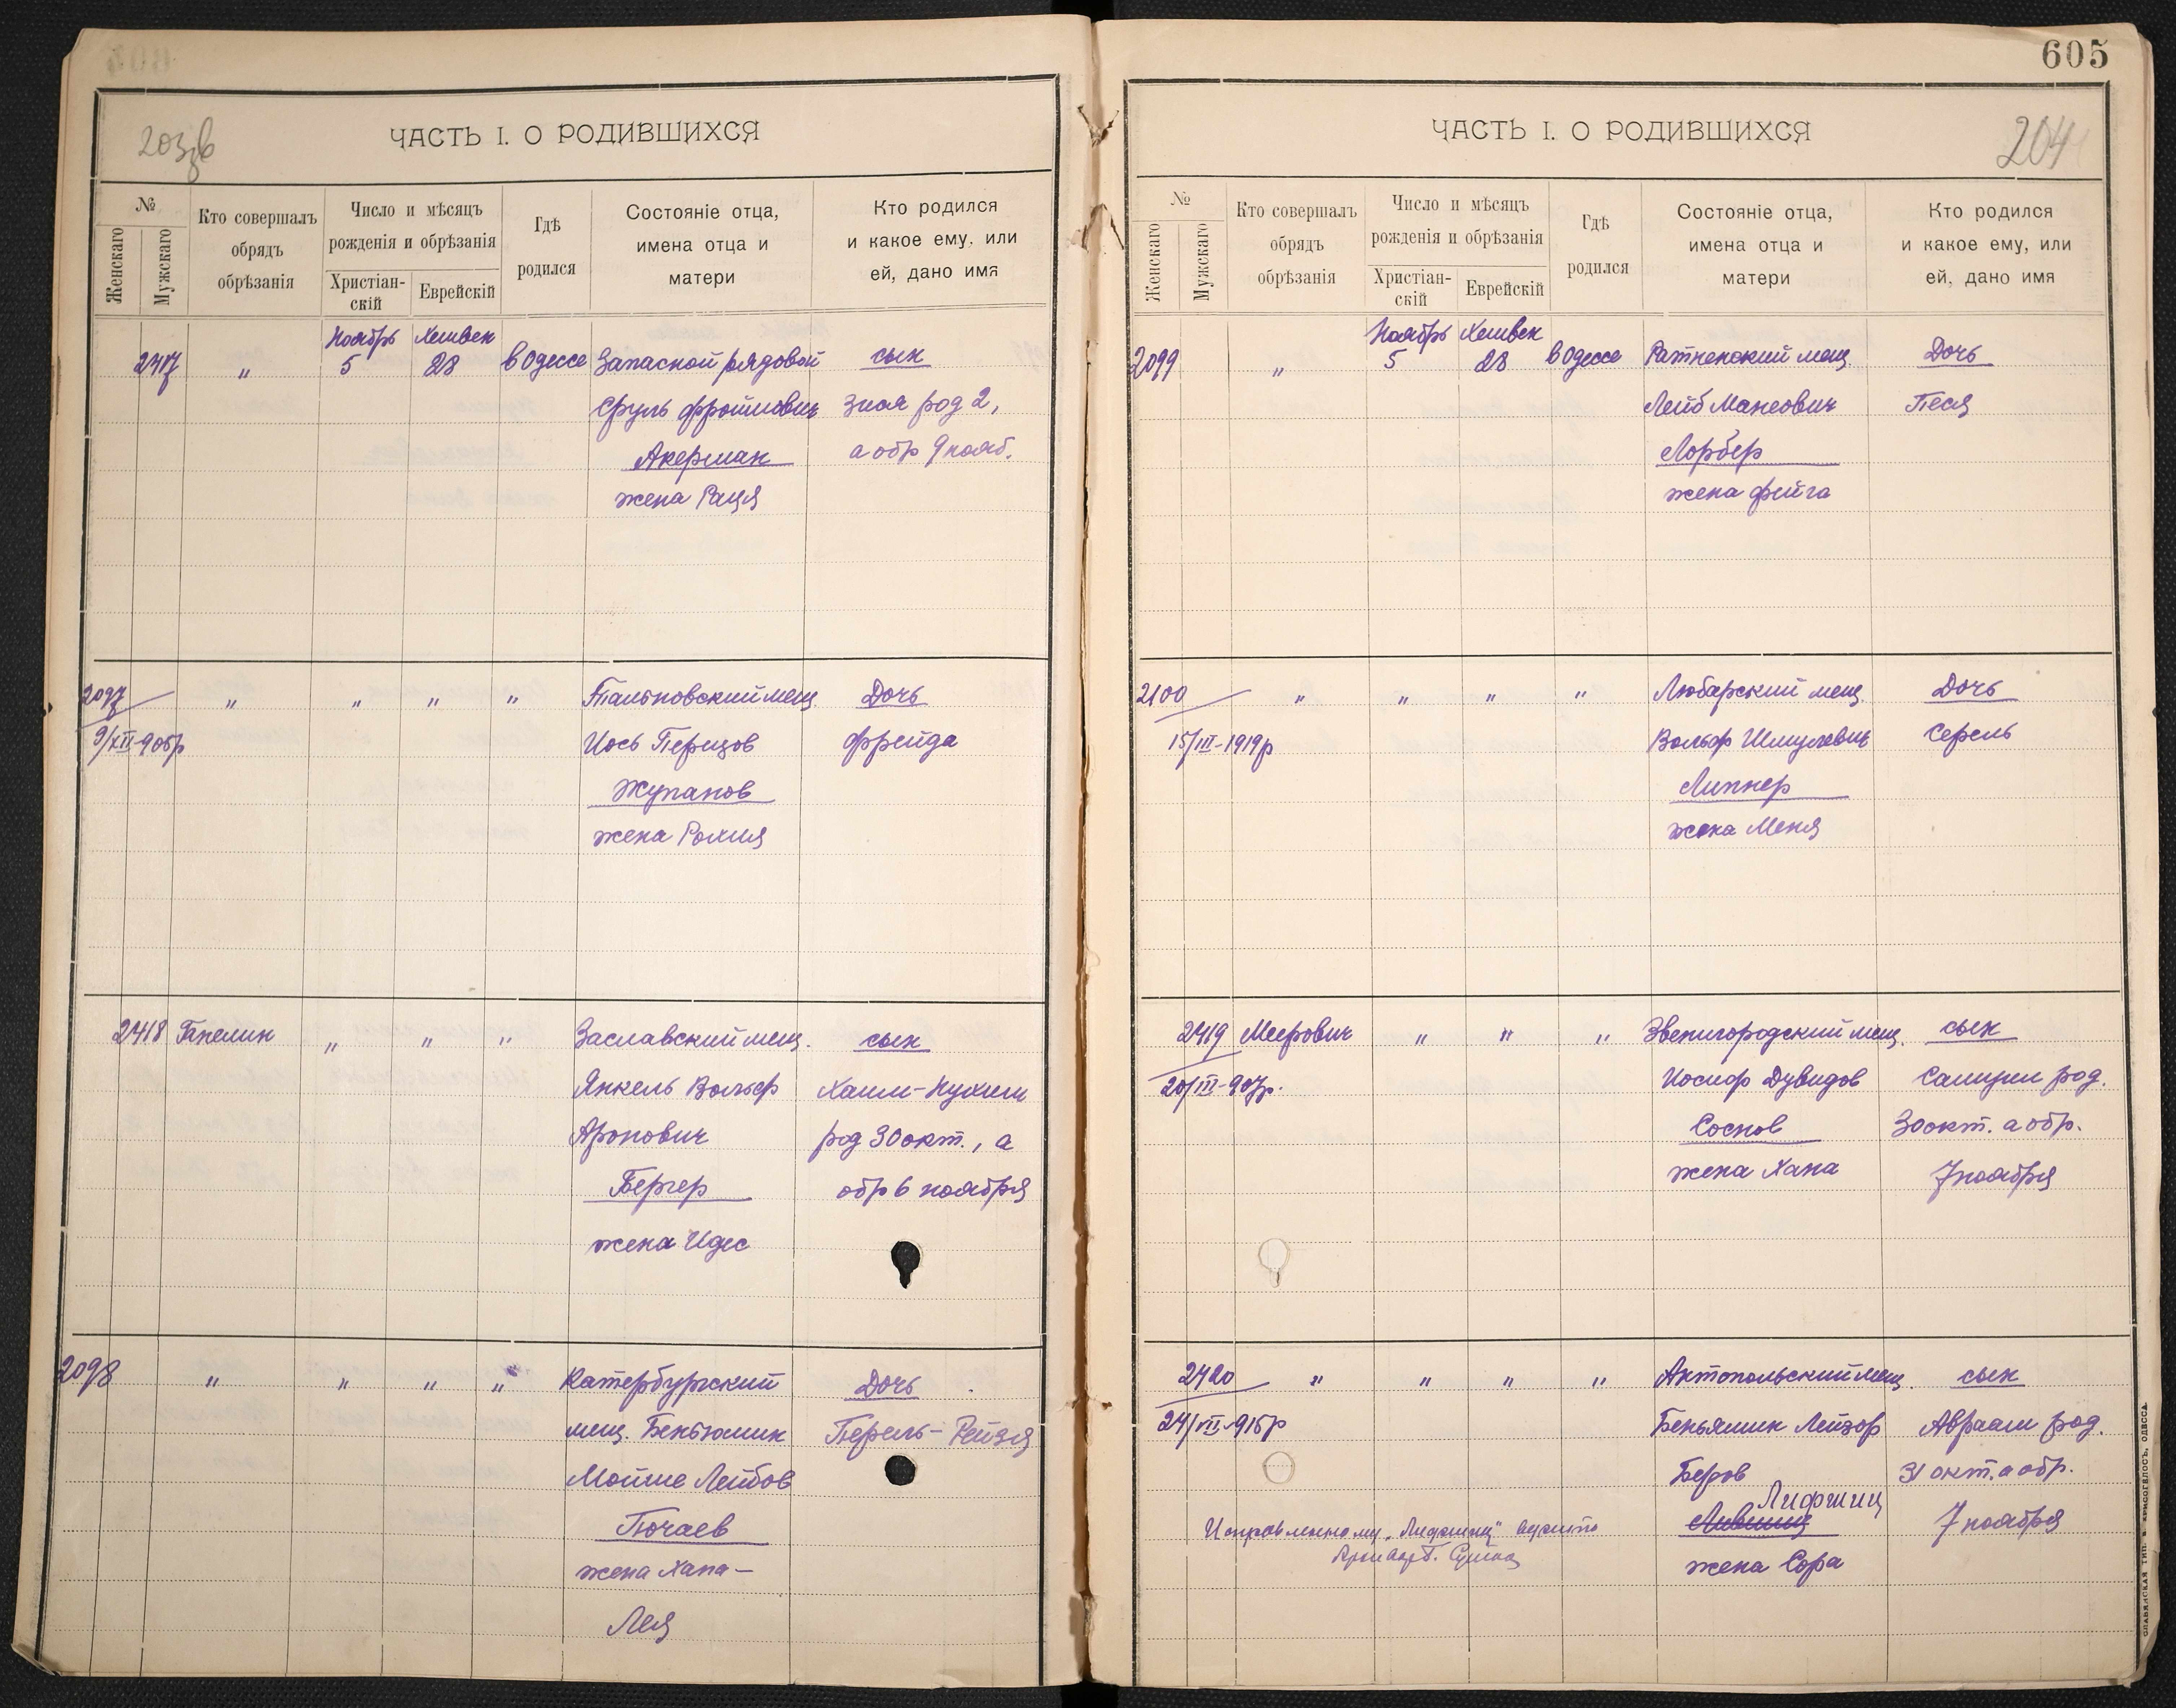 203зв
ЧАСТЬ I. О РОДИВШИХСЯ
№
Женскаго
Мужскаго
Кто совершалъ
обрядъ
обрѣзанія
Число и мѣсяцъ
рожденія и обрѣзанія
Христіан-
скій
Еврейскій
Гдѣ
родился
Состояніе отца,
имена отца и
матери
Кто родился
и какое ему, или
ей, дано имя
Ноябрь Хешвен
2417 " 5 28 в Одессе Запасной рядовой сын
Сруль Фроимович Зися род 2,
Акерман а обр 9 нояб.
жена Рация
2097 " " " " Тальновский мещ Дочь
9/XII-905р Иось Перецов Фрейда
Жупанов
жена Рохля
2418 Гапелин " " " Заславский мещ. сын
Янкель Вольф Хаим-Нухим
Аронович род 30 окт., а
Бергер обр 6 ноября
жена Идес
2098 " " " " Катербургский Дочь
мещ. Беньюмин Перель-Рейзя
Мойше Лейбов
Почаев
жена Хана-
Лея
605
204
ЧАСТЬ I. О РОДИВШИХСЯ
№
Женскаго
Мужскаго
Кто совершалъ
обрядъ
обрѣзанія
Число и мѣсяцъ
рожденія и обрѣзанія
Христіан-
скій
Еврейскій
Гдѣ
родился
Состояніе отца,
имена отца и
матери
Кто родился
и какое ему, или
ей, дано имя
Ноябрь Хешвен
2099 " 5 28 в Одессе Ратненский мещ. Дочь
Лейб Манеович Песя
Лорбер
жена Фейга
2100 " " " " Любарский мещ. Дочь
15/III-1919р Вольф Шмулевич Серель
Липнер
жена Меня
2419 Меерович " " " Звенигородский мещ. сын
20/III-907р. Иосиф Дувидов Самуил род.
Соснов 30 окт. а обр.
жена Хана 7 ноября
2420 " " " " Антопольский мещ. сын
24/VII-915р Беньямин Лейзор Авраам род.
Беров 31 окт. а обр.
Лифшиц
Лившиц 7 ноября
Исправленному "Лифшиц"
жена Сора
СЛАВЯНСКАЯ ТИП. Н. ХРИСОГЕЛОСЪ, ОДЕССА.